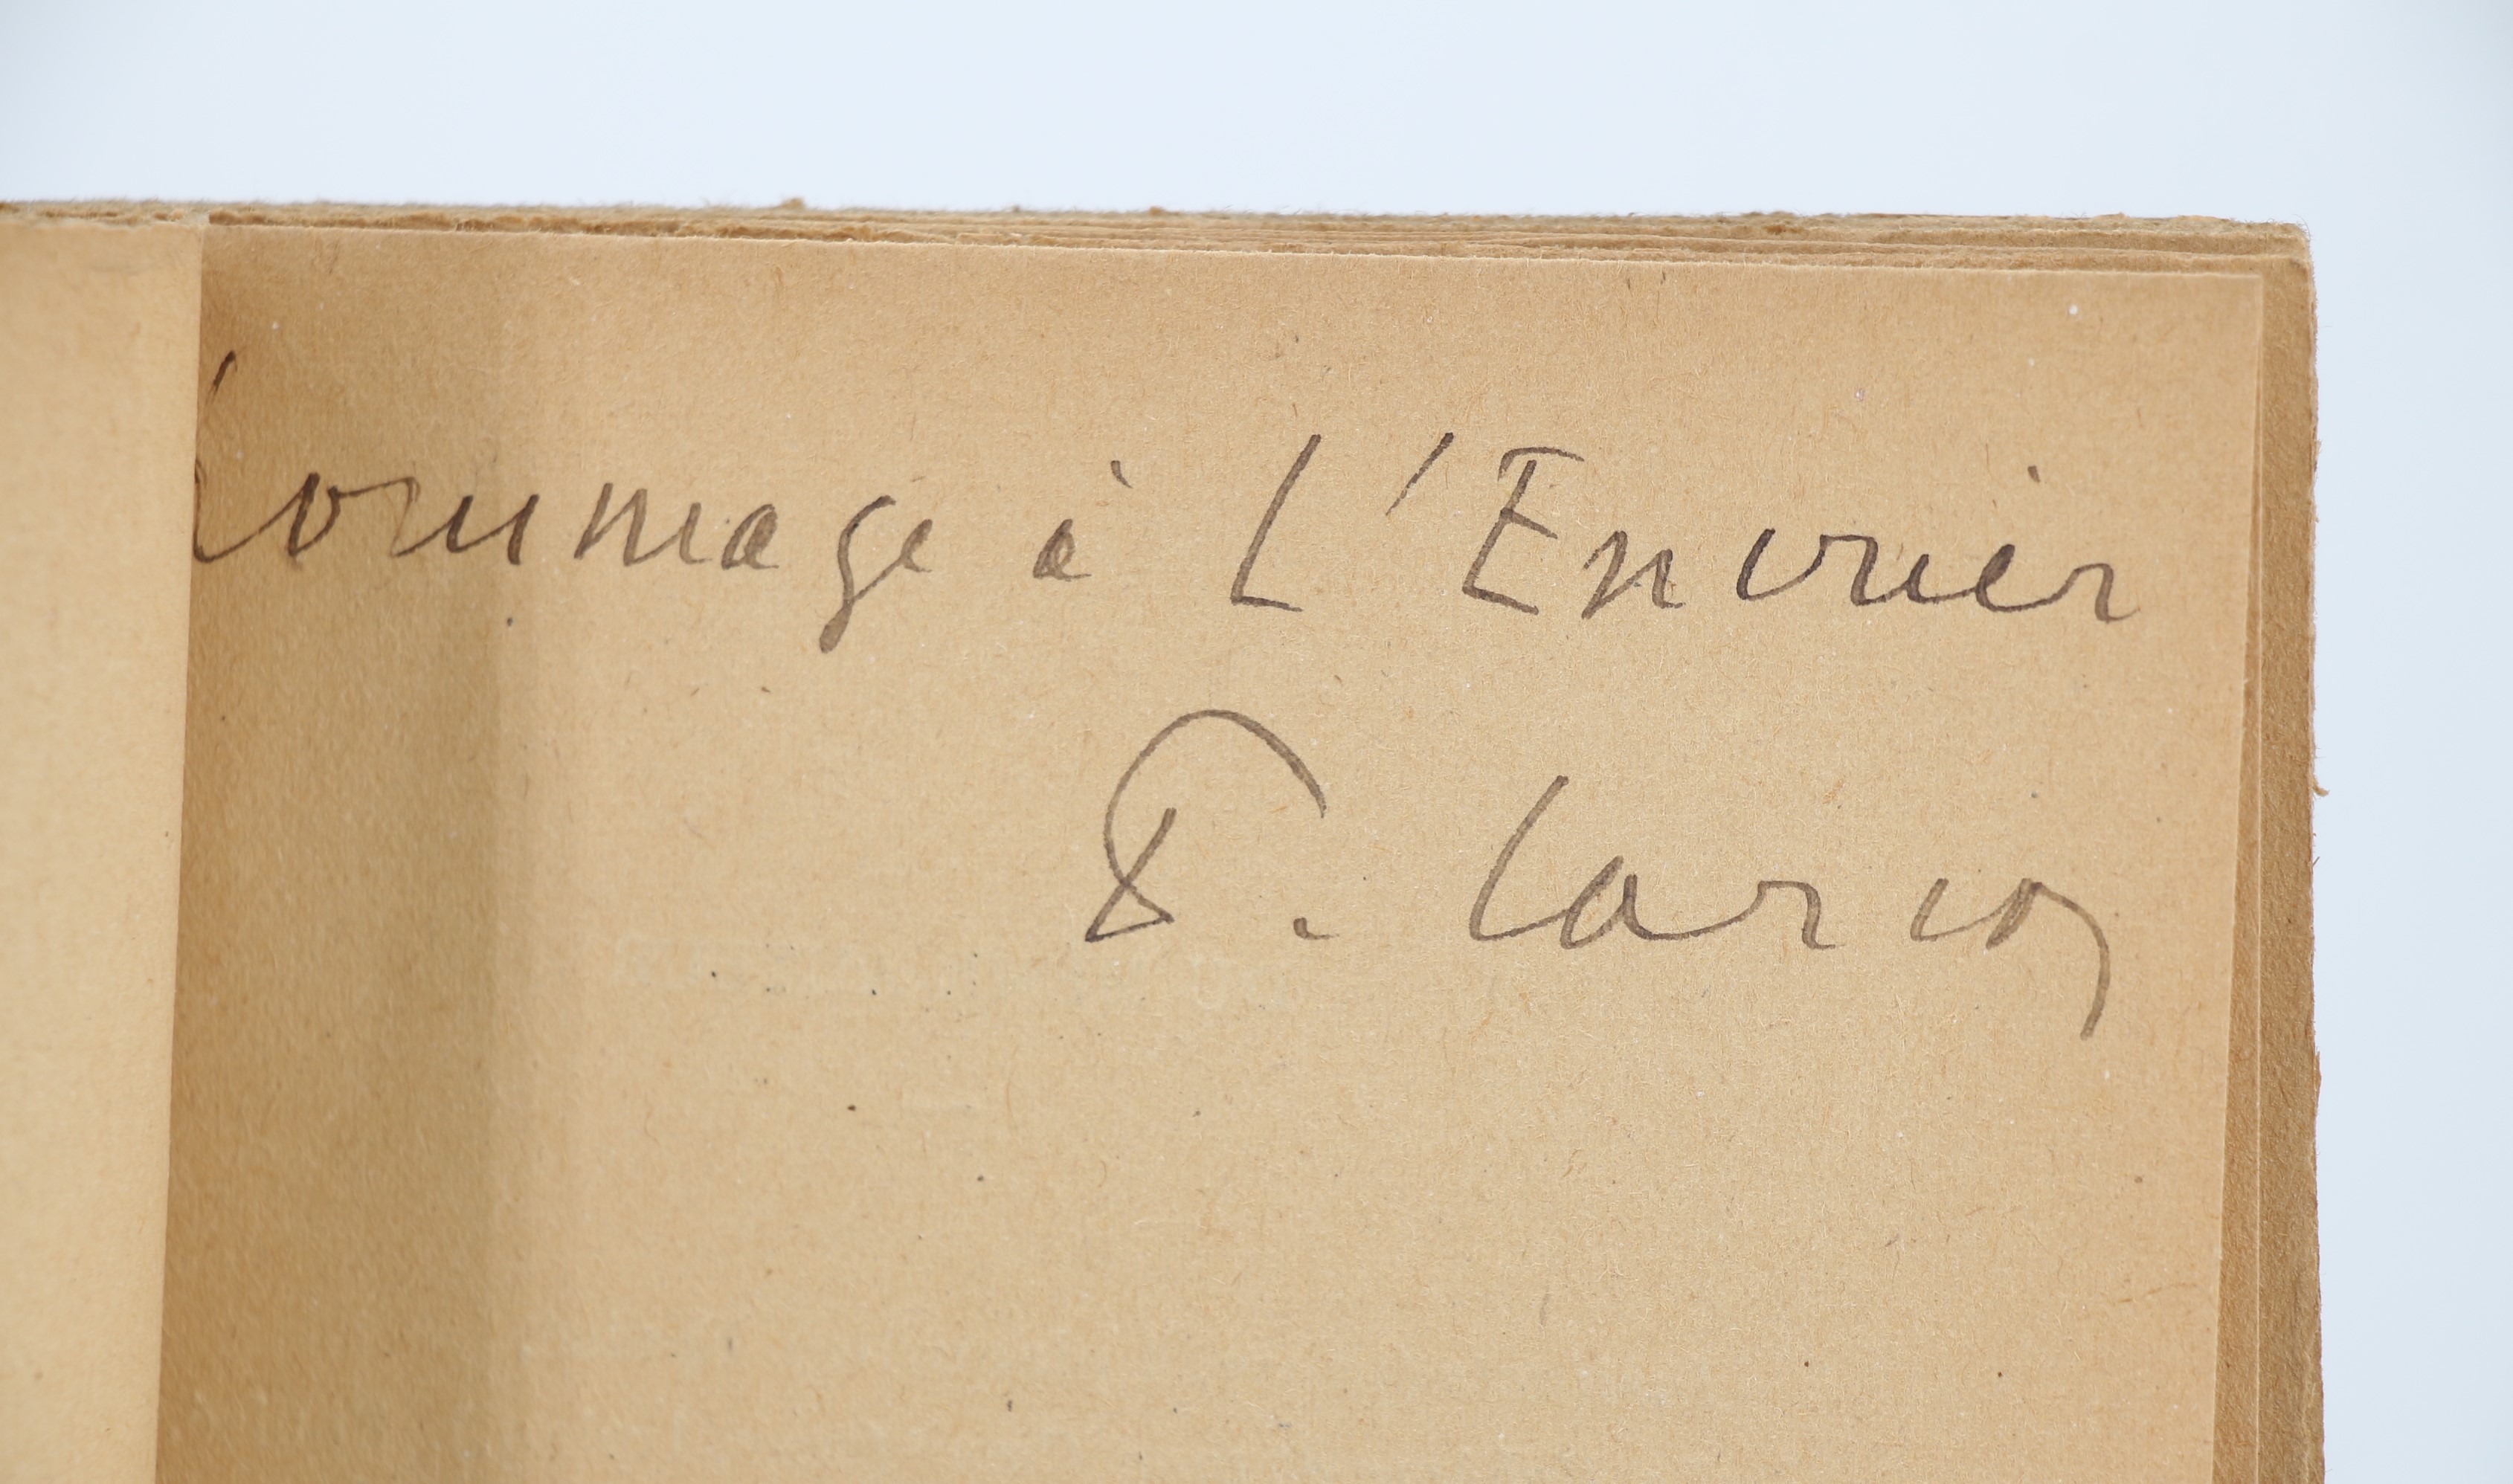 hommage à L'Encrier
F. Carco